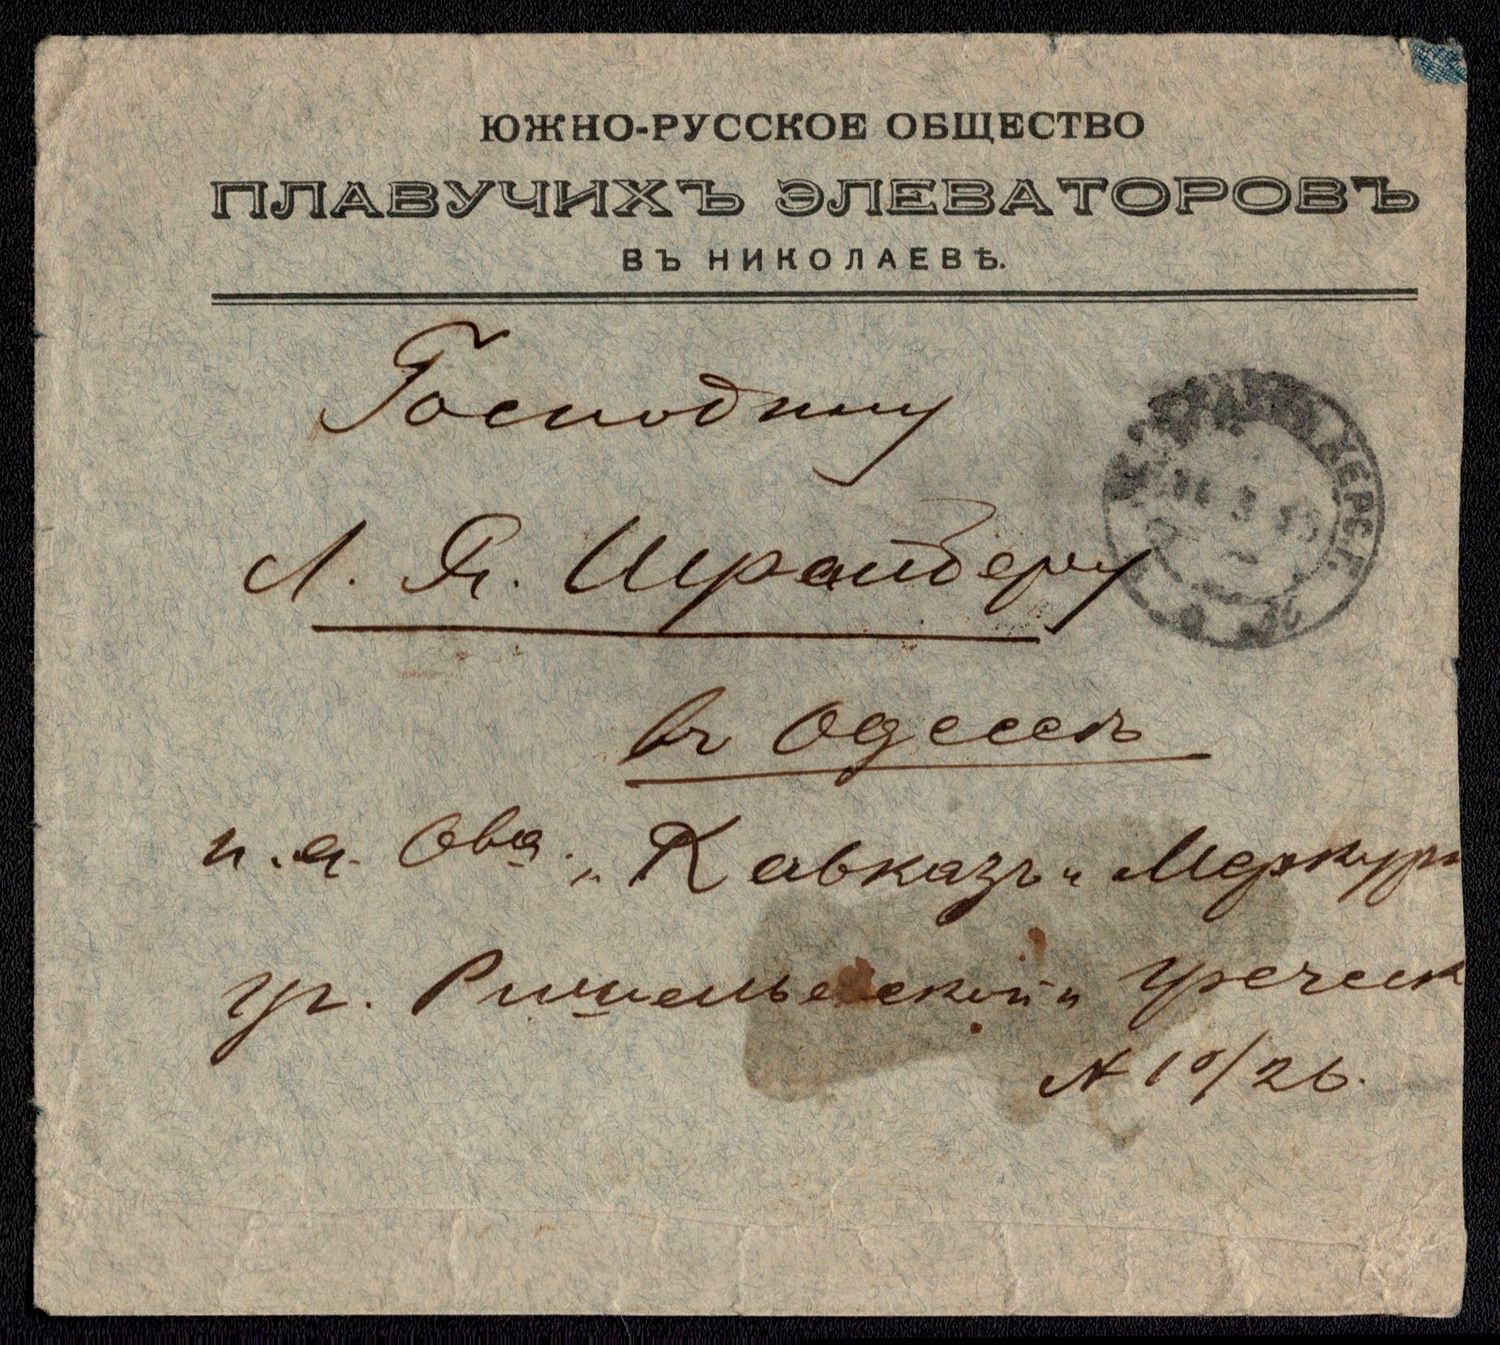 ЮЖНО-РУССКОЕ ОБЩЕСТВО
ПЛАВУЧИХЪ ЭЛЕВАТОРОВЪ
ВЪ НИКОЛАЕВѢ.
Господину
Л. Я. Шрайберу
въ Одессѣ
Ова „Кавказъ и Меркур
уг. Ришельевской и Греческ
№ 10/26.
ХЕРС.